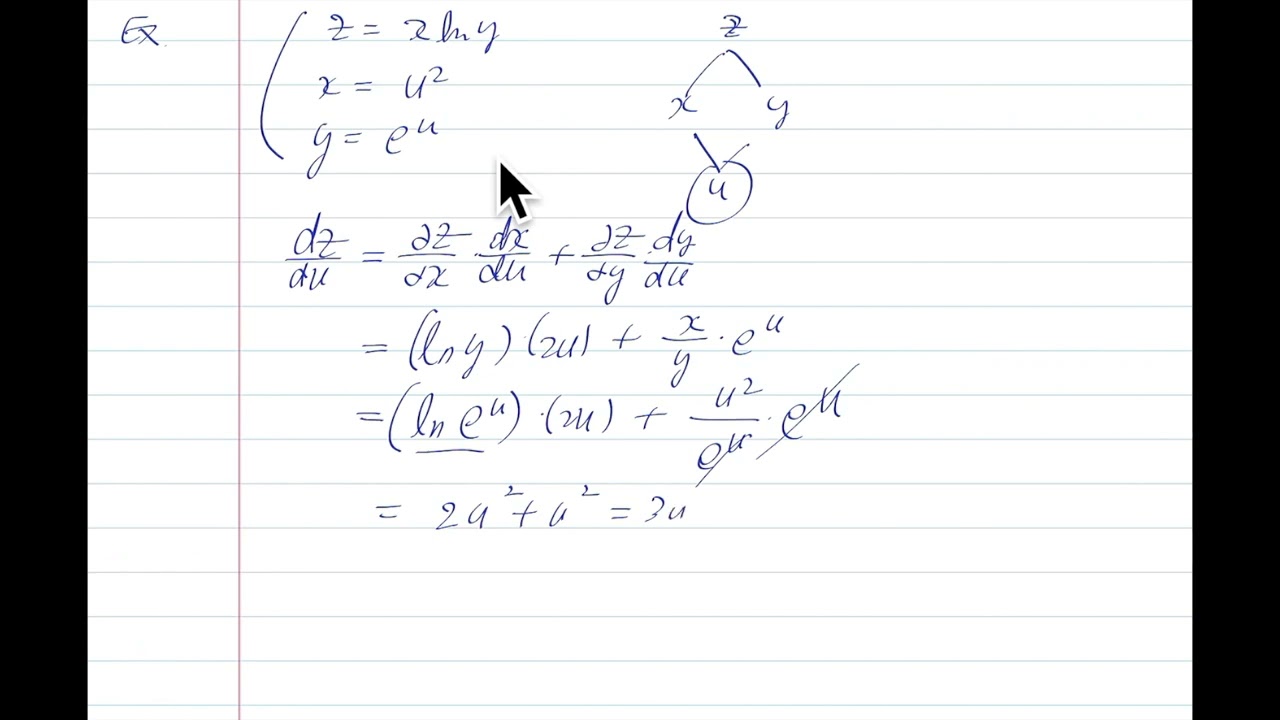 Ex.
z = x ln y
x = u²
y = e^u
z
x y
u
dz/du = ∂z/∂x · dx/du + ∂z/∂y · dy/du
= (ln y) · (2u) + x/y · e^u
= (ln e^u) · (2u) + u²/e^u · e^u
= 2u² + u² = 3u